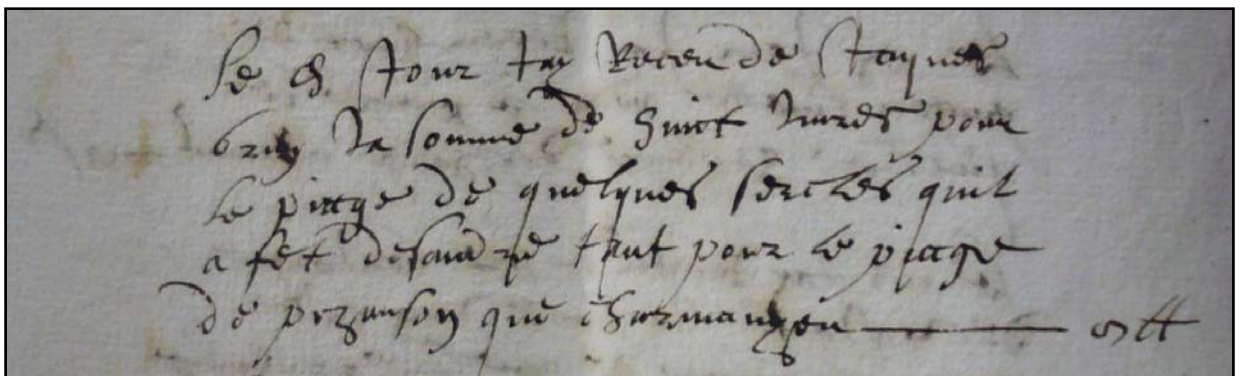 Le d. jour jay Receu de jaques
brun la somme de huict livres pour
le peage de quelques sercles quil
a fet desandre tant pour le peage
de pizanson que charmanyeu 8 ₶